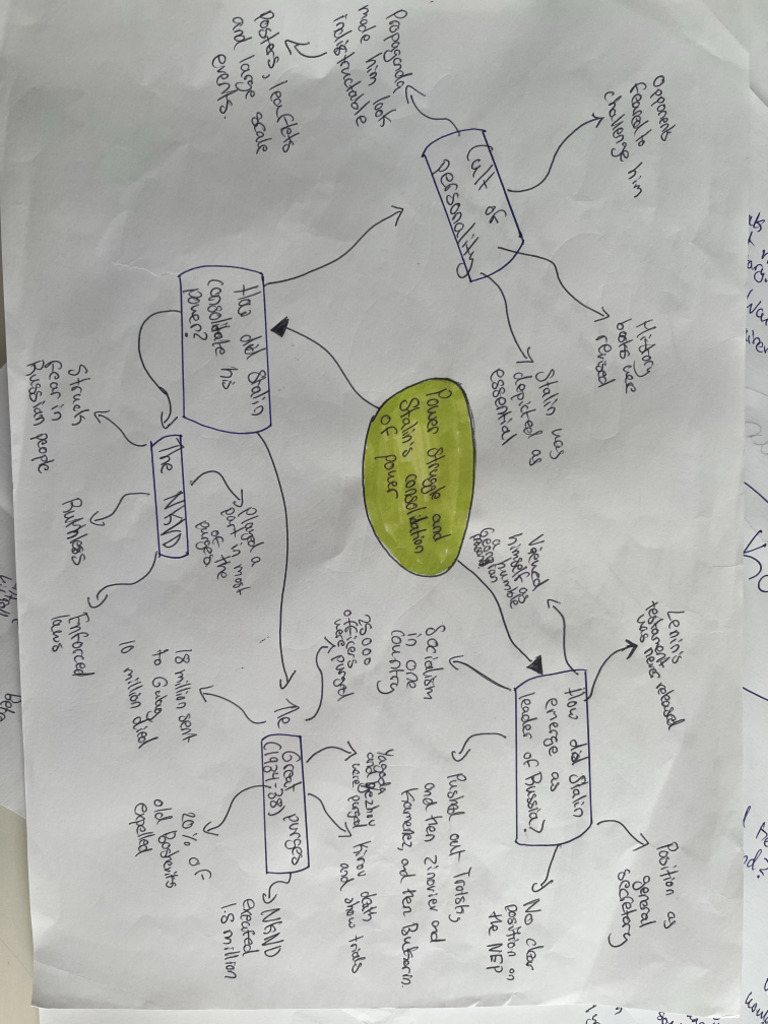 Power Struggle and
Stalin's consolidation
of power
How did Stalin
emerge as
leader of Russia?
Lenin's
testament
was never released
Viewed
himself as
a humble
Georgian
Socialism
in one
country
Pushed out Trotsky,
and then Zinoviev and
Kamenez, and then Bukharin.
No clear
position on
the NEP
Position as
general
secretary
How did Stalin
consolidate his
power?
Cult of
personality
Opponents
feared to
challenge him
Propaganda
made him look
indistructable
Posters, leaflets
and large scale
events.
History
books were
revised
Stalin was
depicted as
essential
The NKVD
Struck
fear in
Russian people
Ruthless
Enforced
laws
Played a
part in most
of the
purges
The
Great purges
(1934-38)
25,000
officers
were purged
18 million sent
to Gulag
10 million died
20% of
old Bolsheviks
expelled
Yagoda
and Yezhov
were purged
Kirov death
and show trials
NKVD
executed
1.8 million